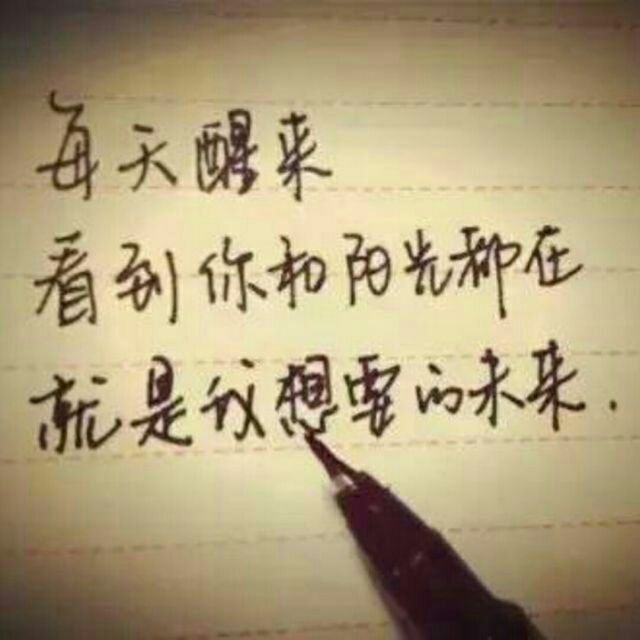 每天醒来
看到你和阳光都在
就是我想要的未来.